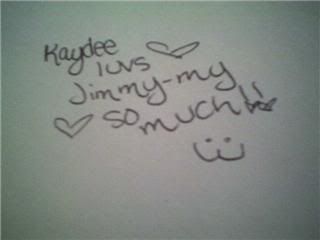 Kaydee
luvs
Jimmy-my
so much!!